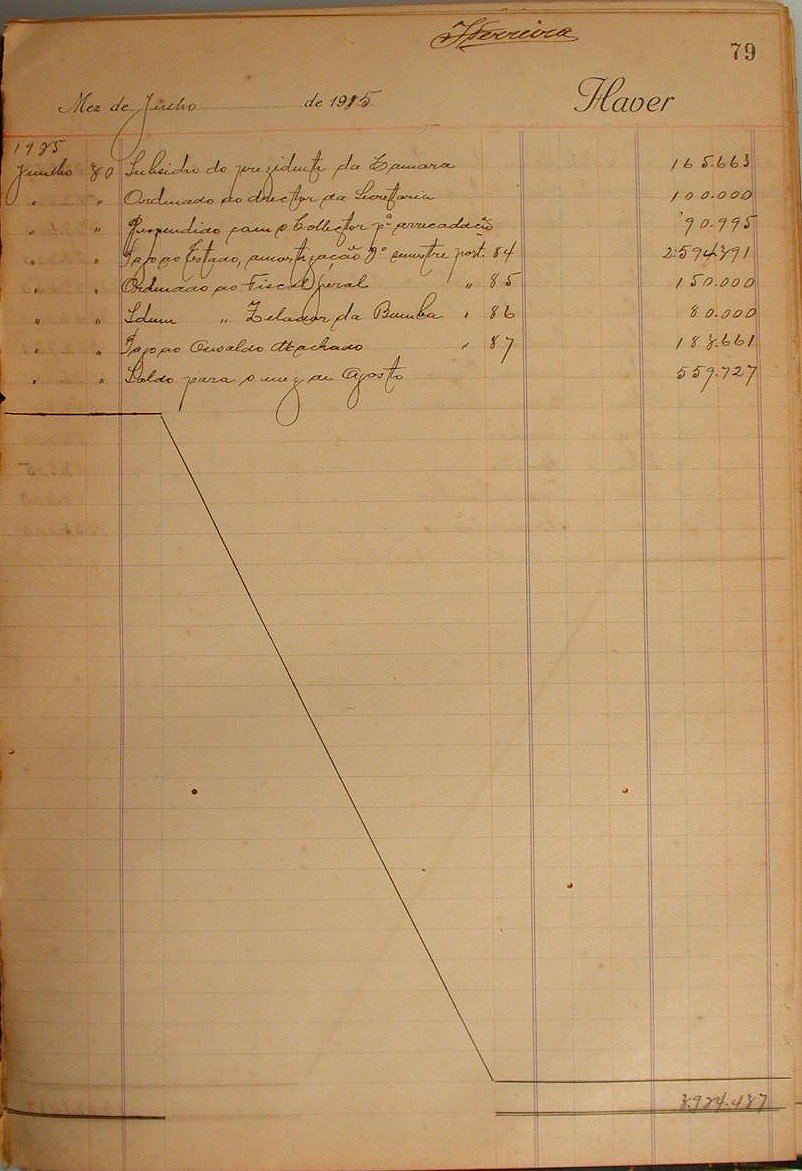 JFerreira
79
Mez de Junho de 1925
Haver
1925
Junho 30 Subsidio do prezidente da Camara 165.663
" " Ordenado ao director da Secretaria 100.000
" " Despendido com o Collector pª arrecadação 90.995
" " Pago ao Estado, amortização 2º semestre port. 84 2:594.391
" " Ordenado ao Fiscal Geral " 85 150.000
" " Idem " Zelador da Bomba " 86 80.000
" " Pago ao Oswaldo Machado " 87 183.661
" " Saldo para o mez de Agosto 559.727
3.924.437